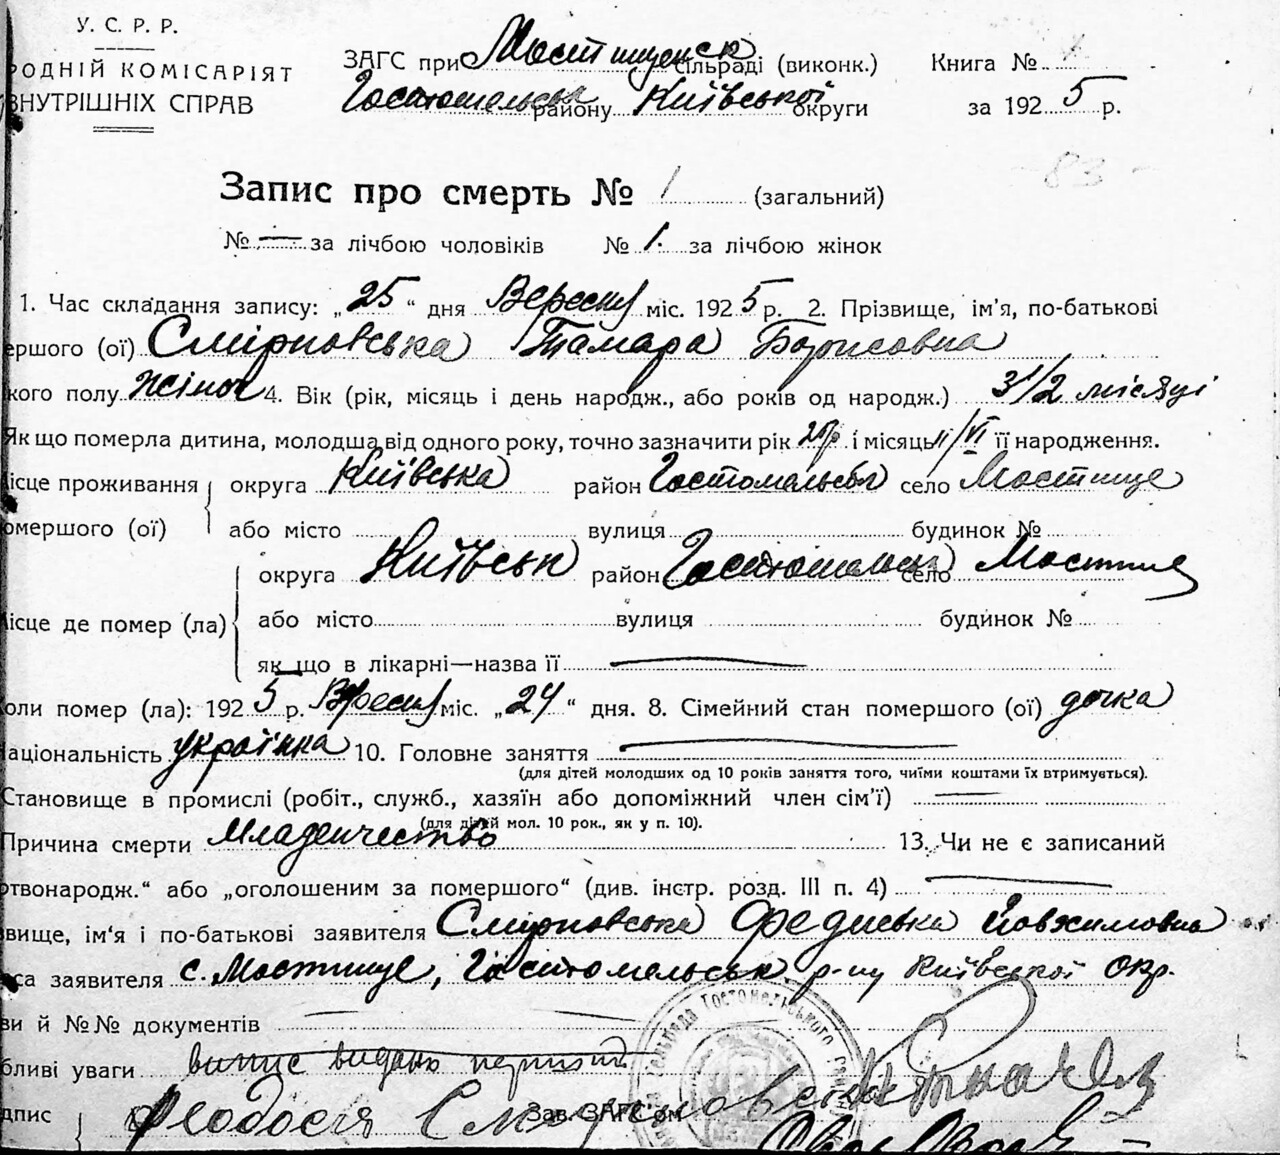 У. С. Р. Р.
РОДНІЙ КОМІСАРІЯТ
ВНУТРІШНІХ СПРАВ
ЗАГС при Мостищенськ сільраді (виконк.)
Гостомельськ району Київської округи
Книга №
за 1925 р.
83
Запис про смерть № 1 (загальний)
№ — за лічбою чоловіків № 1. за лічбою жінок
1. Час складання запису: „25“ дня Вересня міс. 1925 р. 2. Прізвище, ім'я, по-батькові
ершого (ої) Смірновська Тамара Борисовна
кого полу жіноч 4. Вік (рік, місяць і день народж., або років од народж.) 3 1/2 місяці
Як що померла дитина, молодша від одного року, точно зазначити рік 25р і місяць /VI її народження.
ісце проживання округа Київська район Гостомельськ село Мостище
омершого (ої) або місто вулиця будинок №
округа Київськ район Гостомельськ село Мостище
ісце де помер (ла) або місто вулиця будинок №
як що в лікарні—назва її —
оли помер (ла): 1925 р. Вересня міс. „24“ дня. 8. Сімейний стан помершого (ої) дочка
аціональність українка 10. Головне заняття —
(для дітей молодших од 10 років заняття того, чиїми коштами їх втримується).
Становище в промислі (робіт., служб., хазяїн або допоміжний член сім'ї) —
(для дітей мол. 10 рок., як у п. 10).
Причина смерти Младенчество 13. Чи не є записаний
ртвонародж.“ або „оголошеним за помершого“ (див. інстр. розд. III п. 4) —
звище, ім'я і по-батькові заявителя Смірновська Йовхимовна
са заявителя с. Мостище, Гостомельськ р-ну Київської окр.
ви й №№ документів —
бливі уваги випис видано
дпис Феодосія Смірновська Зав. ЗАГС'ом Ткачев
Гостомельського